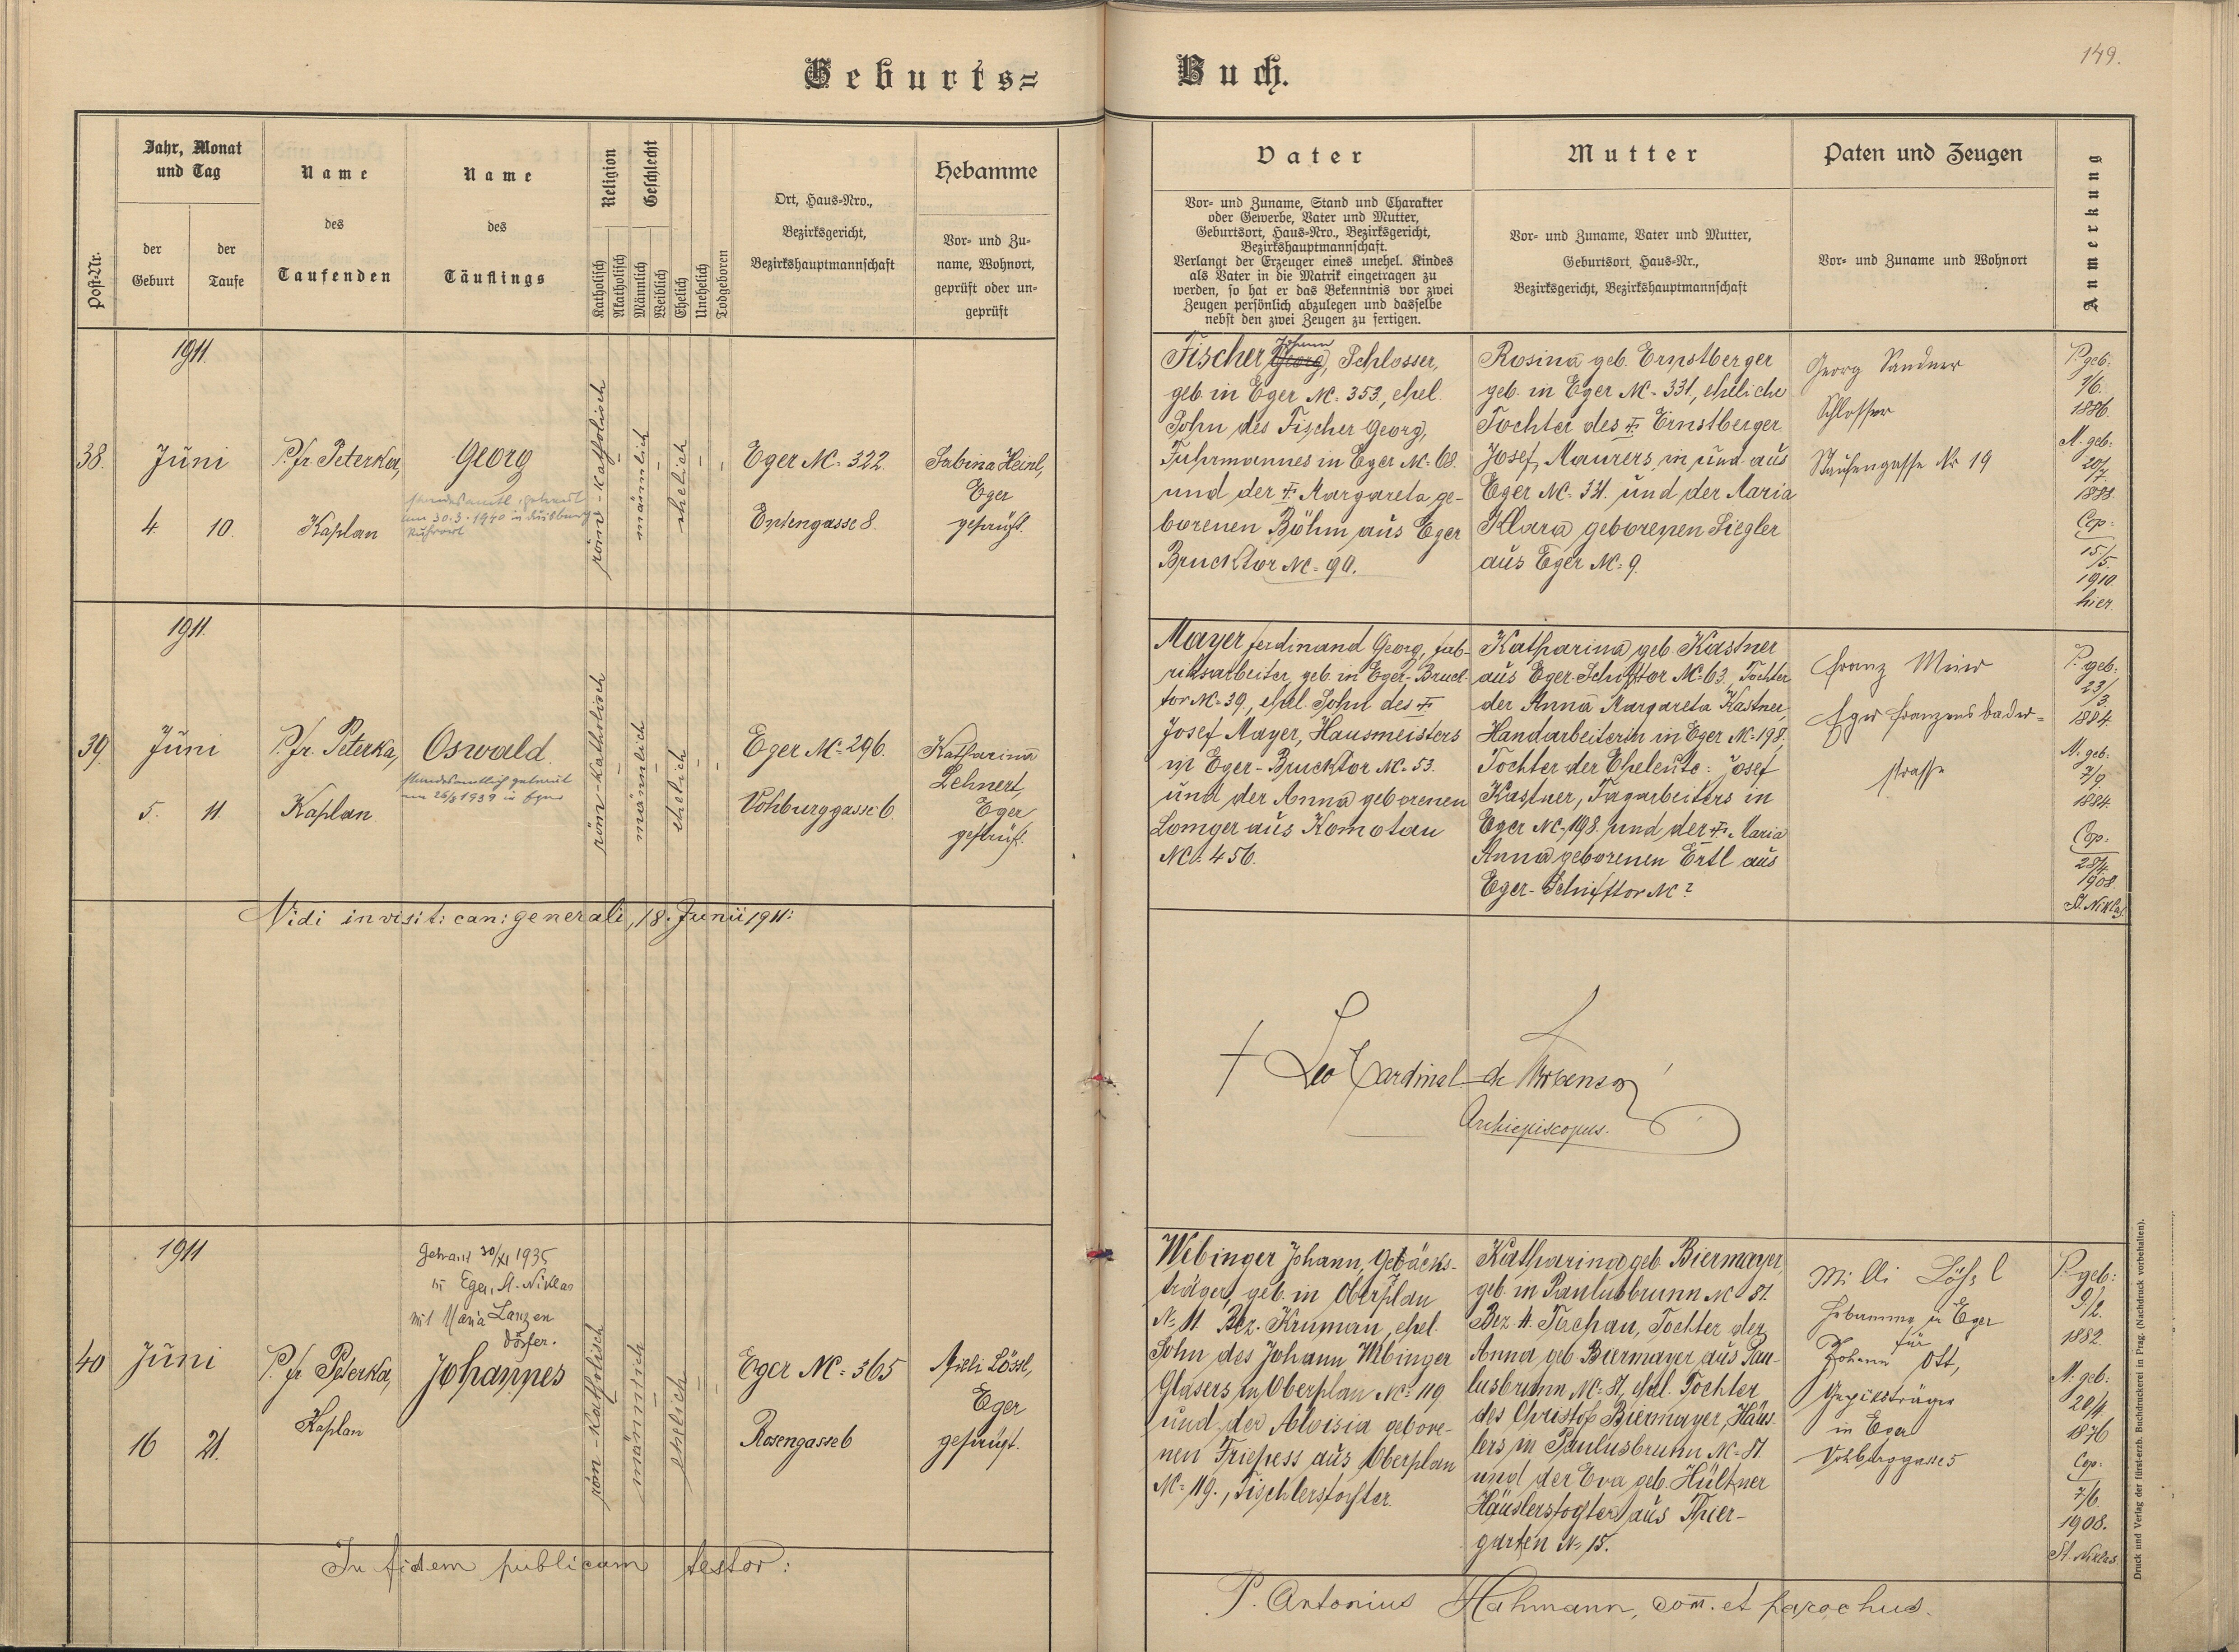 149.
Geburts=
Buch.
Post-Nr.
Jahr, Monat
und Tag
der
Geburt
der
Taufe
Name
des
Taufenden
Name
des
Täuflings
Religion
Katholisch
Akatholisch
Geschlecht
Männlich
Weiblich
Ehelich
Unehelich
Todgeboren
Ort, Haus-Nro.,
Bezirksgericht,
Bezirkshauptmannschaft
Hebamme
Vor- und Zu-
name, Wohnort,
geprüft oder un-
geprüft
Vater
Vor- und Zuname, Stand und Charakter
oder Gewerbe, Vater und Mutter,
Geburtsort, Haus-Nro., Bezirksgericht,
Bezirkshauptmannschaft.
Verlangt der Erzeuger eines unehel. Kindes
als Vater in die Matrik eingetragen zu
werden, so hat er das Bekenntnis vor zwei
Zeugen persönlich abzulegen und dasselbe
nebst den zwei Zeugen zu fertigen.
Mutter
Vor- und Zuname, Vater und Mutter,
Geburtsort, Haus-Nr.,
Bezirksgericht, Bezirkshauptmannschaft
Paten und Zeugen
Vor- und Zuname und Wohnort
Anmerkung
1911.
38.
Juni
4. 10.
P. fr. Peterka,
Kaplan
Georg
standesamtl. getraut
am 30.3.1940 in Duisburg
Ruhrort
röm-katholisch
männlich
ehelich
Eger NC= 322.
Entengasse 8.
Sabina Heinl,
Eger
geprüft.
Johann
Fischer Georg, Schlosser,
geb. in Eger NC= 353, ehel.
Sohn des Fischer Georg,
Fuhrmannes in Eger NC= 68.
und der † Margareta ge-
borenen Böhm aus Eger
Brucktor NC= 90.
Rosina geb. Ernstberger
geb. in Eger NC= 331, eheliche
Tochter des † Ernstberger
Josef, Maurers in und aus
Eger NC= 331. und der Maria
Klara geborenen Siegler
aus Eger NC= 9.
Georg Sandner
Schlosser
Staufengasse Nr 19
P. geb:
7/6.
1886.
M. geb:
20/7.
1888.
Cop:
15./5.
1910
hier.
1911.
39.
Juni
5. 11.
P. fr. Peterka,
Kaplan
Oswald.
standesamtlich getraut
am 26/8 1939 in Eger
röm-katholisch
männlich
ehelich
Eger NC= 296.
Vohburggasse 6.
Katharina
Lehnert,
Eger
geprüft.
Mayer Ferdinand Georg, Fab-
riksarbeiter, geb. in Eger-Bruck-
tor NC= 39., ehel. Sohn des †
Josef Mayer, Hausmeisters
in Eger-Brucktor NC= 53.
und der Anna geborenen
Lomger aus Komotau
NC= 456.
Katharina geb. Kastner
aus Eger-Schifftor NC= 63. Tochter
der Anna Margareta Kastner,
Handarbeiterin in Eger NC= 198,
Tochter der Eheleute: Josef
Kastner, Tagarbeiters in
Eger NC= 198. und der † Maria
Anna geborenen Ertl aus
Eger-Schifftor NC ?
Franz Meier
Eger Franzensbader-
strasse
P. geb:
23/3.
1884.
M. geb:
7/9.
1884.
Cop:
28/4.
1908.
St. Niklas.
Vidi in visit: can: generali, 18. Junii 1911:
† Leo Cardinal de Skrbensky
Archiepiscopus.
1911
40
Juni
16 21.
P. fr. Peterka,
Kaplan
Getraut 30/XI 1935
in Eger, St. Niklas
mit Maria Lanzen
dörfer.
Johannes
röm-katholisch
männlich
ehelich
Eger NC= 365
Rosengasse 6
Mili Lössl,
Eger
geprüft.
Webinger Johann, Gebäcks-
träger, geb. in Oberplan
No 11. Bez. Krumau, ehel.
Sohn des Johann Webinger
Glasers in Oberplan NC= 119
und der Aloisia gebore-
nen Friepess aus Oberplan
N= 119., Tischlerstochter.
Katharina geb. Biermayer,
geb. in Paulusbrunn NC 81.
Bez. H. Tachau, Tochter der
Anna geb. Biermayer aus Pau-
lusbrunn NC= 81, ehel. Tochter
des Christof Biermayer, Häus-
lers in Paulusbrunn NC= 81.
und der Eva geb. Hültner
Häuslerstochter aus Thier-
garten N= 15.
Milli Lößl
Hebamme in Eger
für
Johann Ott,
Gepäksträger
in Eger
Vohburggasse 5
P. geb:
9/2.
1882.
M. geb:
20/4
1876
Cop:
7/6.
1908.
St. Niklas.
In fidem publicam testor:
P. Antonius Hahmann, com. et parochus.
Druck und Verlag der fürst-erzb. Buchdruckerei in Prag. (Nachdruck vorbehalten).